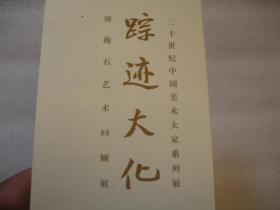 二十世纪中国美术大家系列展
踪迹大化
傅抱石艺术回顾展